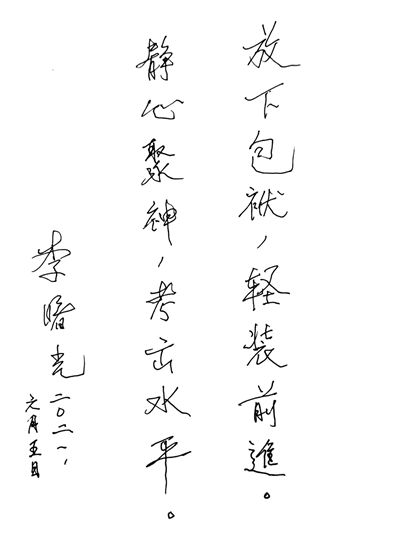 放下包袱，軽装前進。
静心聚神，考出水平。
李曙光
二〇二一、
元月五日